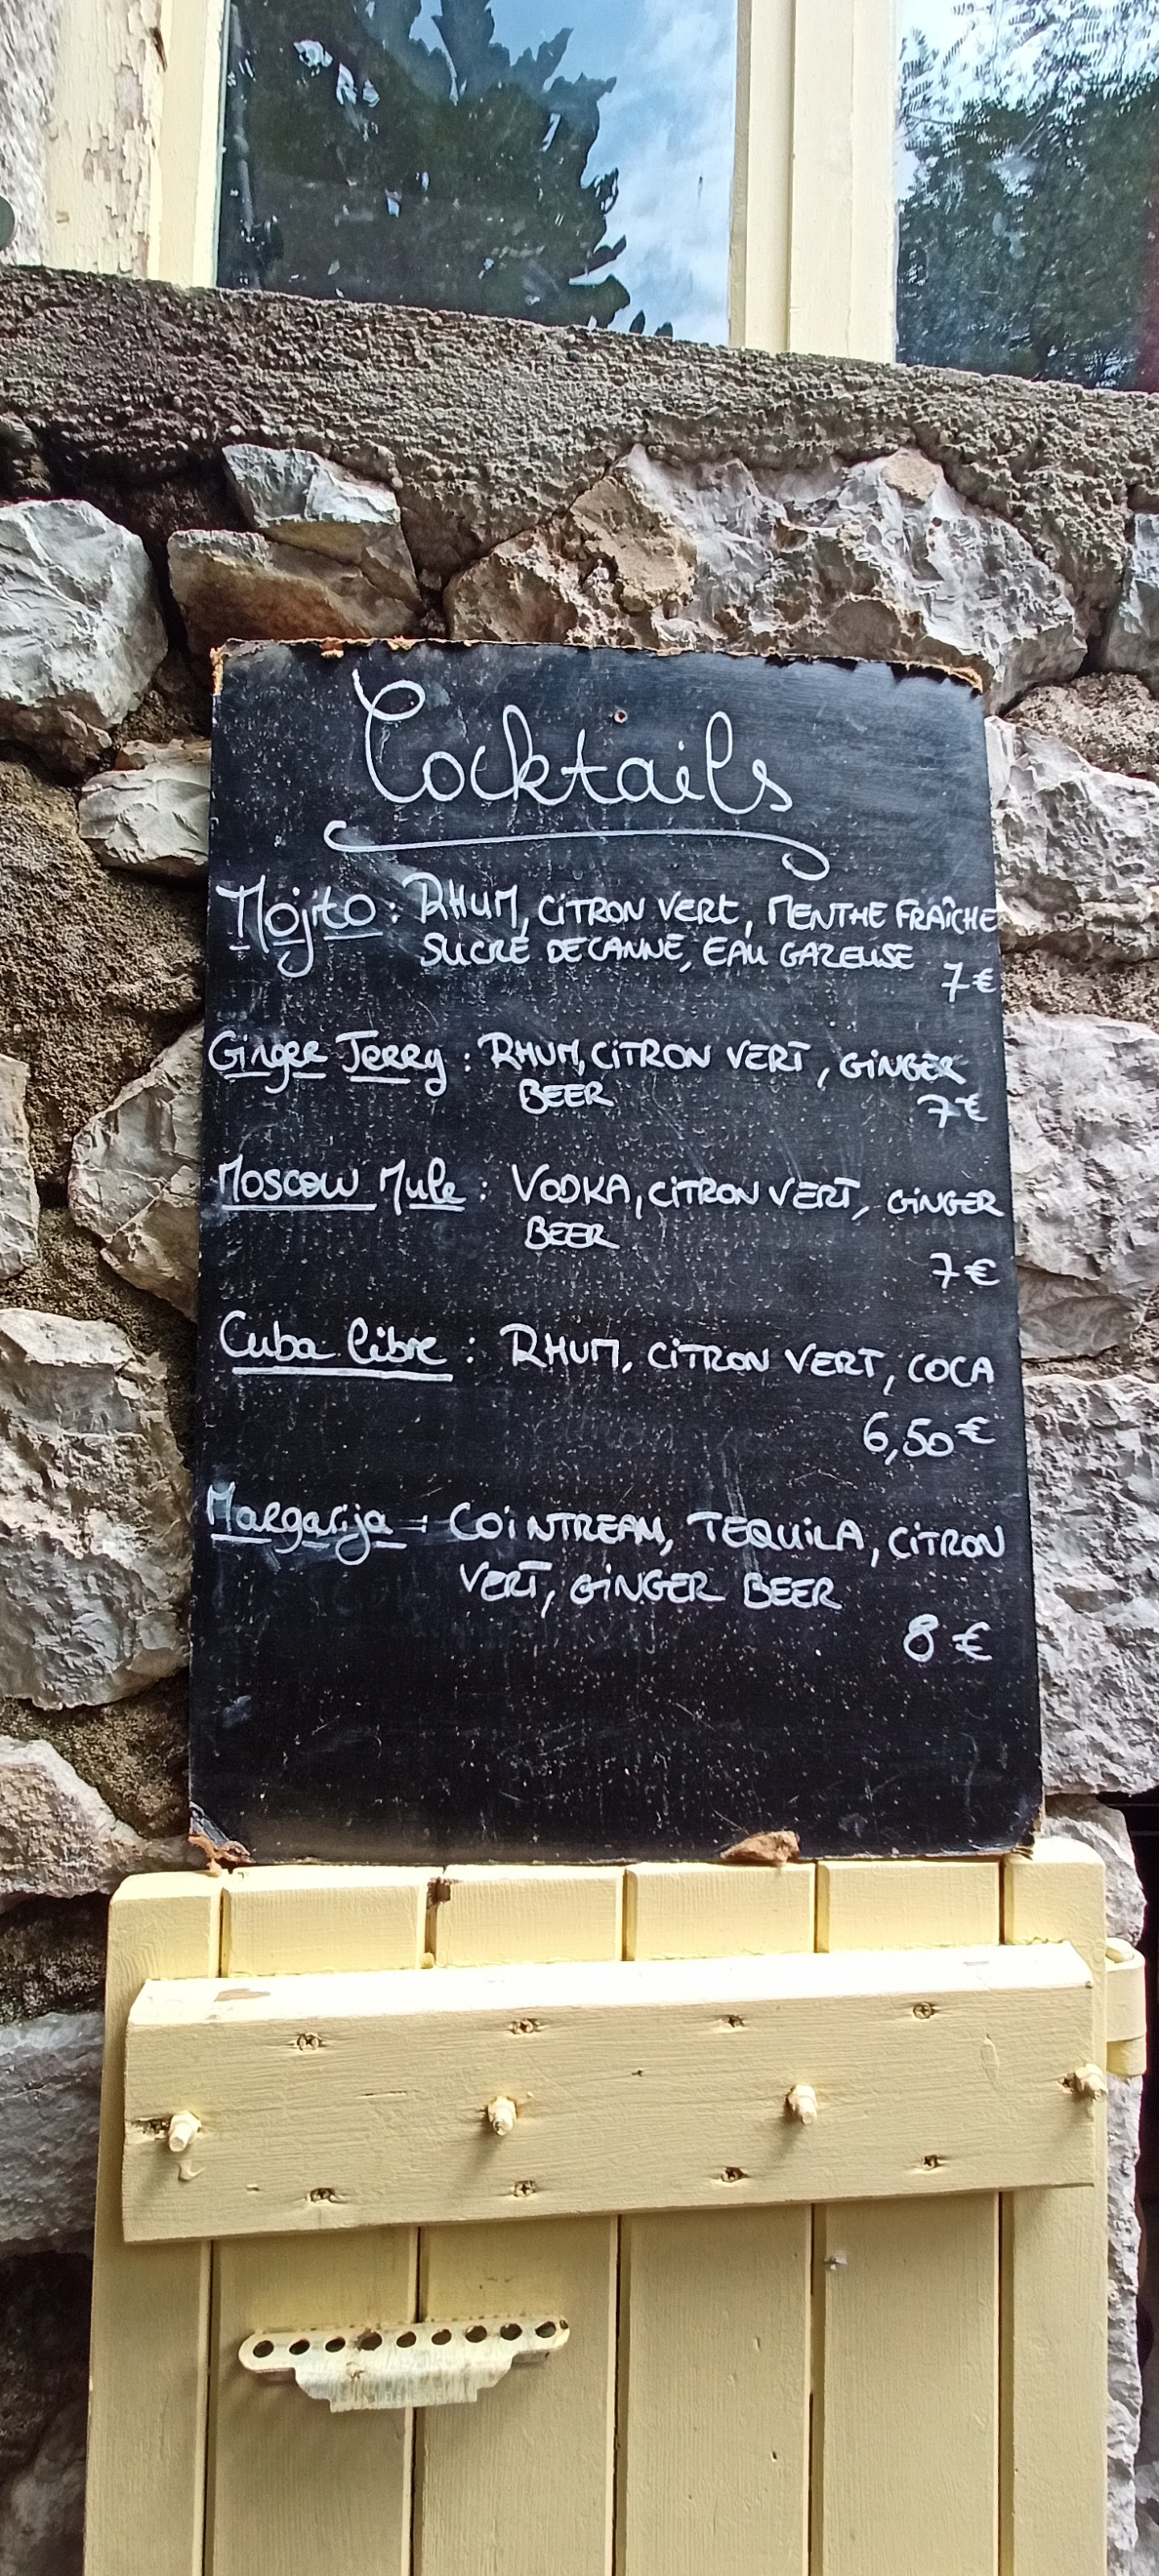 Cocktails
Mojito : RHUM, CITRON VERT, MENTHE FRAÎCHE
SUCRE DE CANNE, EAU GAZEUSE
7€
Ginger Jerry : RHUM, CITRON VERT, GINGER
BEER
7€
Moscow Mule : VODKA, CITRON VERT, GINGER
BEER
7€
Cuba libre : RHUM, CITRON VERT, COCA
6,50€
Margarija : COINTREAM, TEQUILA, CITRON
VERT, GINGER BEER
8€